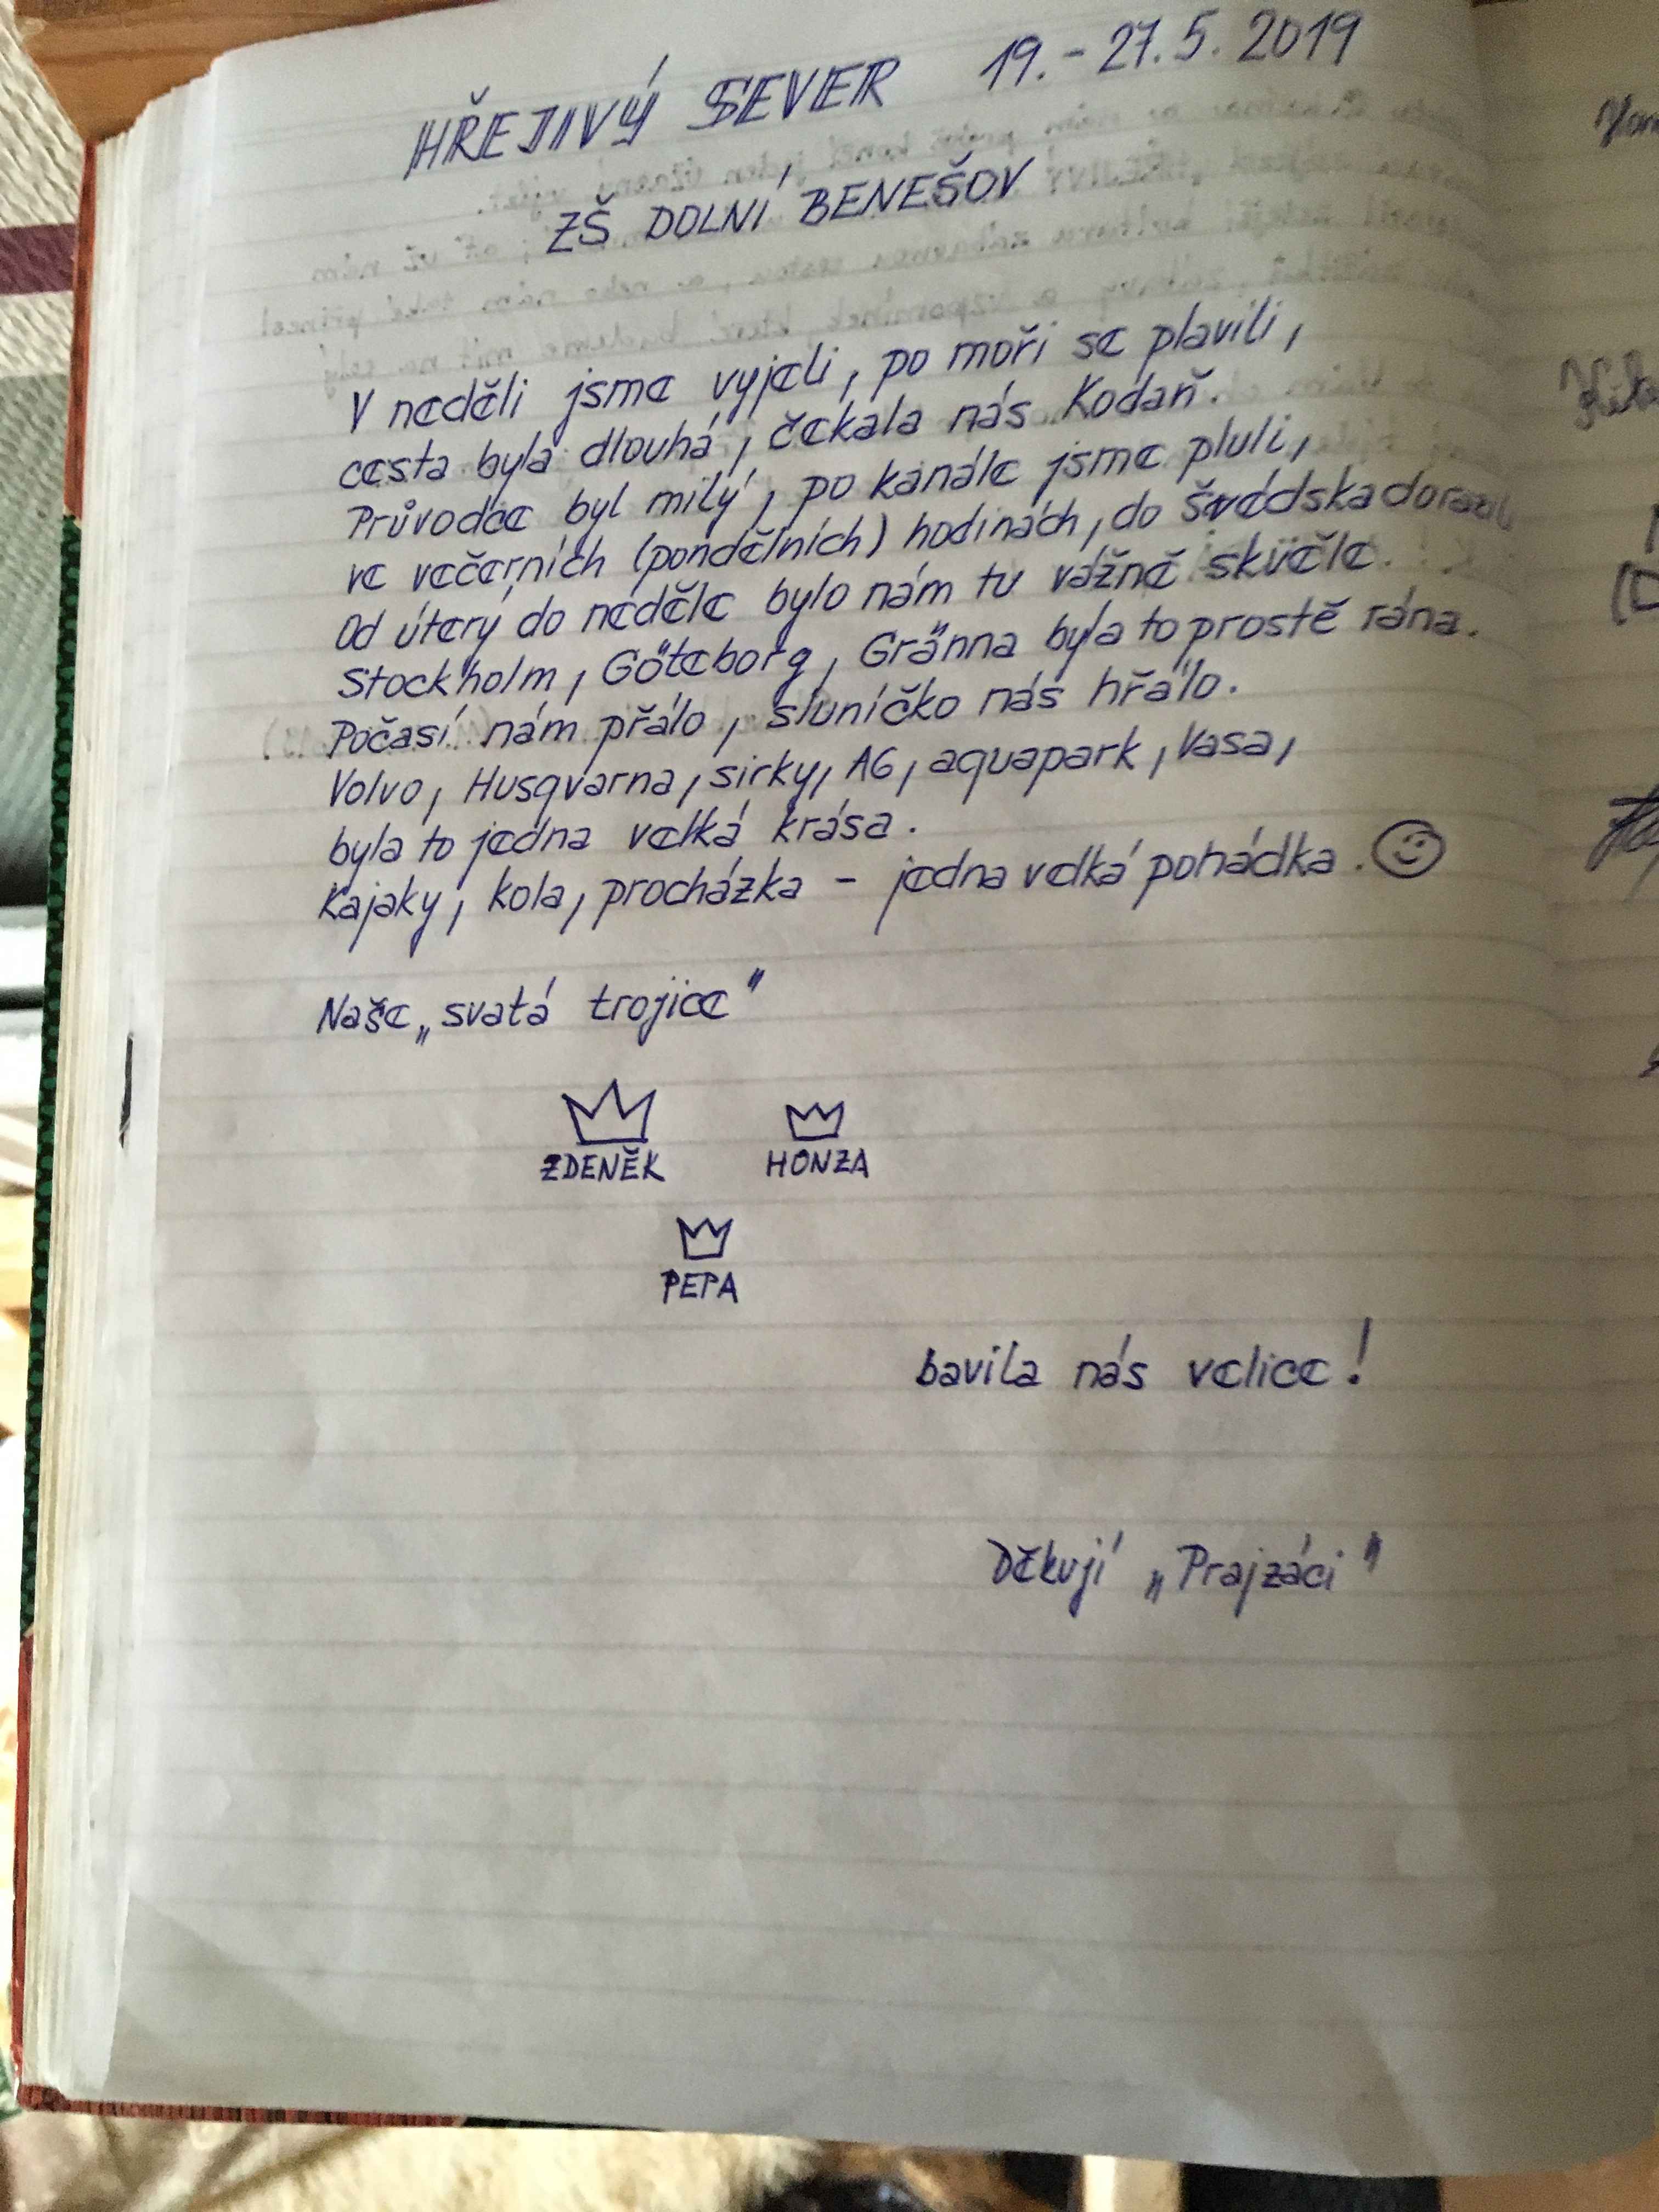 HŘEJIVÝ SEVER 19.-27.5.2019
ZŠ DOLNÍ BENEŠOV
V neděli jsme vyjeli, po moři se plavili,
cesta byla dlouhá, čekala nás Kodaň.
Průvodce byl milý, po kanále jsme pluli,
ve večerních (pondělních) hodinách, do Švédska dorazili
Od úterý do neděle bylo nám tu vážně skvěle.
Stockholm, Göteborg, Gränna byla to prostě rána.
Počasí nám přálo, sluníčko nás hřálo.
Volvo, Husqvarna, sirky, A6, aquapark, Vasa,
byla to jedna velká krása.
Kajaky, kola, procházka - jedna velká pohádka.
Naše „svatá trojice"
ZDENĚK HONZA
PEPA
bavila nás velice!
Děkují „Prajzáci"